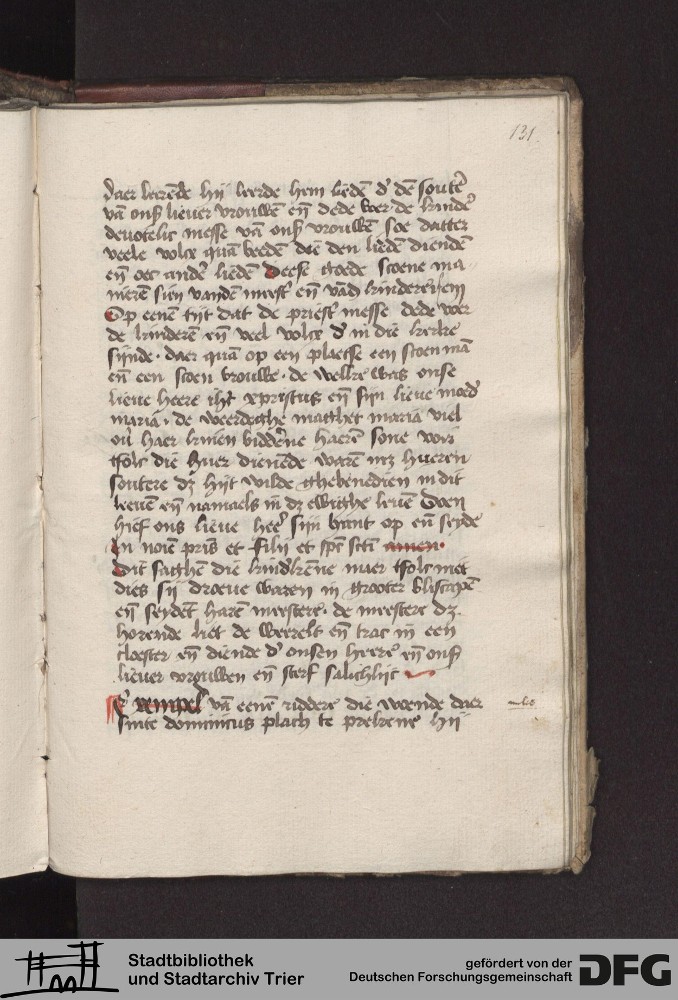 131
daer leerēde hij leerde hem liedē dē soutē
vā onß lieuer vrouwē eñ dede voer de kindē
deuotelic messe vā onß vrouwē soe datter
veele volcx quā beedē die den liedē diendē
eñ oec andē liedē Deese goede scoene ma
nierē sien vandē meest eñ vād kinderē
Op eenē tijt dat de priest messe dede voer
de kinderē eñ veel volcx in die kerke
sijnde daer quā op een plaetse een scoen mā
eñ een scoen vrouwe de welke was onse
lieue heere xpristus eñ sijn lieue moed
maria de weerdeghe maeghet maria viel
haer knien biddēne haerē sone voer
tfolc die huer dienēde warē hueren
soutere hijt wilde ghebenedien in dit
leeuē eñ namaels in ewighe leuē Doen
hief ons lieue heē sijn hant op eñ seyde
In noīe pris et filij et spc scti amen
Dit saghē die kindkēne maer tfolc niet
dies sij droeue waren in grooter bliscapē
eñ seydēt harē meestere de meestere
horende liet de weerelt eñ trac in een
cloester eñ diende onsen heere eñ onß
lieuer vrouwen eñ sterf salichlijc
Exempel vā eenē riddere die woende daer
sinte dominicus plach te prekene hij
Stadtbibliothek
und Stadtarchiv Trier
gefördert von der
Deutschen Forschungsgemeinschaft
DFG